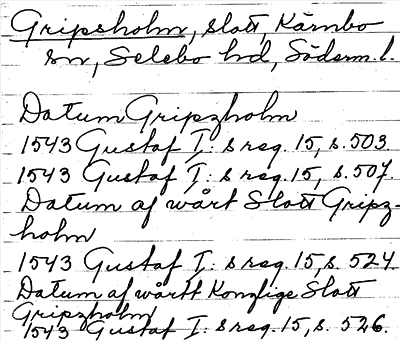 Gripsholm, slott, Kärnbo
sn, Selebo hd, Söderm.l.
Datum Gripzholm
1543 Gustaf I: s reg. 15, s. 503
1543 Gustaf I: s reg. 15, s. 507.
Datum af wårt Slott Gripz-
holm
1543 Gustaf I: s reg. 15, s. 524
Datum af wårtt Konglige Slott
Gripzholm
1543 Gustaf I: s reg. 15, s. 526.